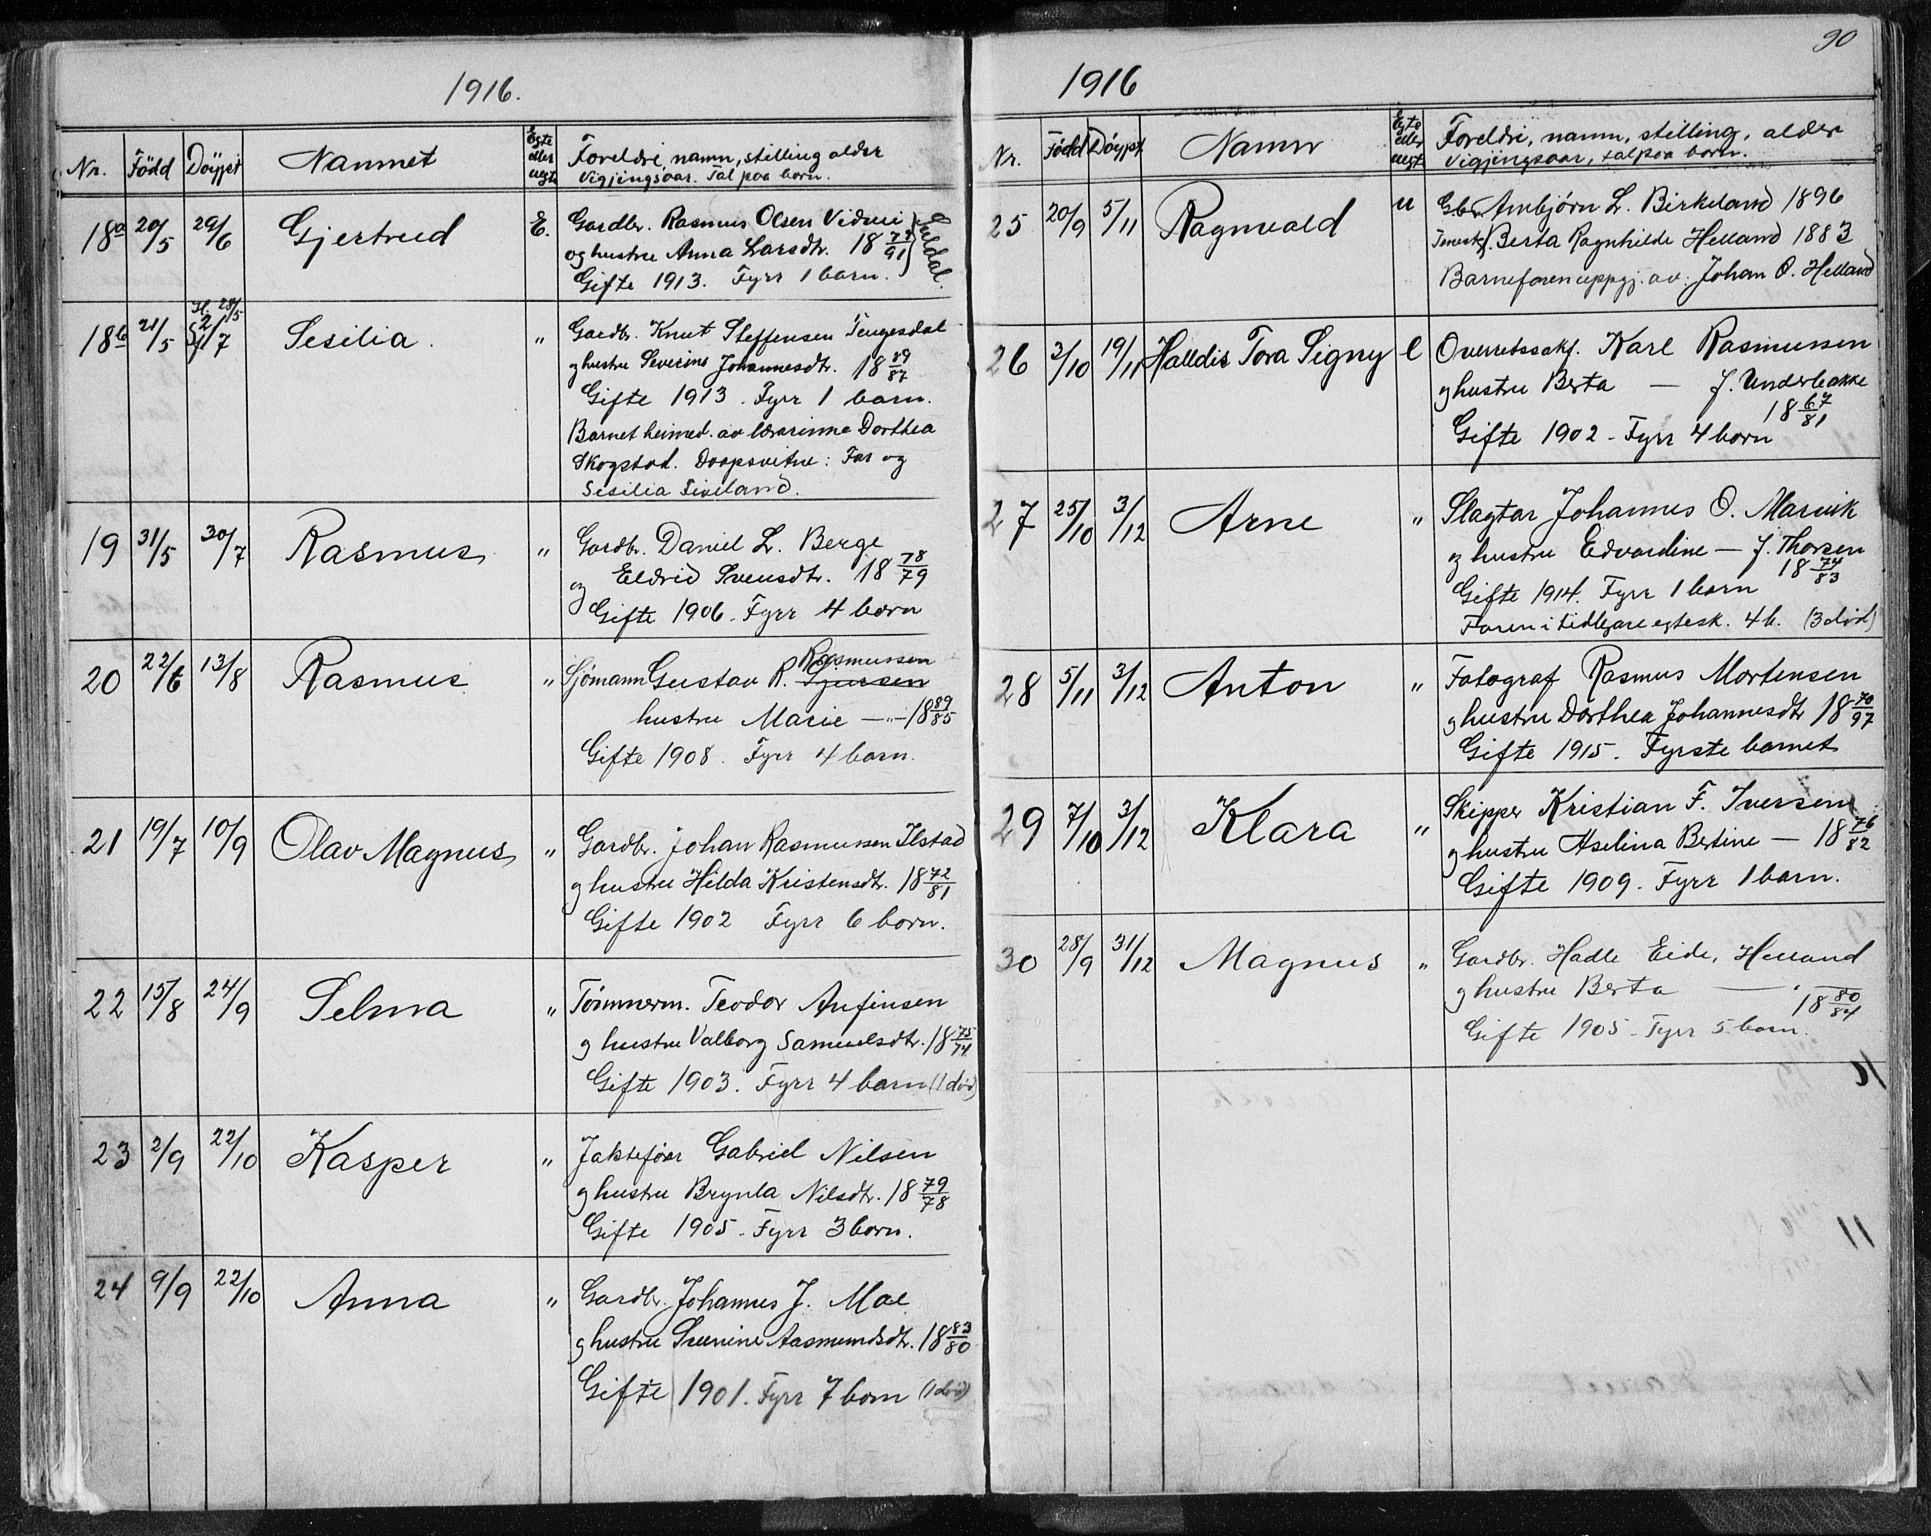 1916.
Nr. Född Döypt Namnet Egte eller uegte Foreldri, namn, stilling alder
Vigjingsaar. Tal paa born.
18a 20/5 29/6 Gjertrud E. Gardbr. Rasmus Olsen
og hustru Anna Larsdtr. 18
Gifte 1913. Fyrr 1 barn.
18b 21/5 H. 28/5 2/7 Sesilia. " Gardbr. Knut Steffensen Tengesdal
og hustru Severine Johannesdtr. 18 89/87
Gifte 1913. Fyrr 1 barn.
Barnet heimed. av lærarinne Dorthea
Skogstad. Doopsvitne: Far og
Sesilia Siveland.
19 31/5 30/7 Rasmus " Gardbr. Daniel L. Berge
og Eldrid Svensdtr. 18 78/79
Gifte 1906. Fyrr 4 born
20 22/6 13/8 Rasmus " Sjömann Gustav R. Rasmussen
hustru Marie —"— 18 89/85
Gifte 1908. Fyrr 4 barn.
21 19/7 10/9 Olav Magnus " Gardbr. Johan Rasmussen Ilstad
og hustru Hilda Kristensdtr. 18 72/81
Gifte 1902 Fyrr 6 born.
22 15/8 24/9 Selma " Tömmerm. Teodor Anfinsen
og hustru Valborg Samuelsdtr. 18 75/74
Gifte 1903. Fyrr 4 barn (1 död)
23 2/9 22/10 Kasper " Jakteförar Gabriel Nilsen
og hustru Brynla Nilsdtr. 18 79/78
Gifte 1905. Fyrr 3 born.
24 9/9 22/10 Anna " Gardbr. Johannes J. Moe
og hustru Severine Aasmundsdtr. 18 83/80
Gifte 1901. Fyrr 7 born (1 död)
90
1916
Nr. Född Döypt Namn Egte eller uegte Foreldri, namn, stilling, alder
Vigjingsaar, tal paa born.
25 20/9 5/11 Ragnvald u Gbr. Arnbjørn L. Birkeland 1896
Tenestj. Berta Ragnhilde Helland 1883
Barnefaren uppgj. av. Johan O. Helland
26 3/10 19/11 Halldis Tora Signy e Overretssakf. Karl Rasmussen
og hustru Berta — f. Underbakke
18 67/81
Gifte 1902 - Fyrr 4 born
27 25/10 3/12 Arne " Slagtar Johannes O. Marvik
og hustru Edvardine — f. Thorsen
18 74/83
Gifte 1914. Fyrr 1 barn
Faren i tidlegare egtesk. 4 b. (3 död)
28 5/11 3/12 Anton " Fotograf Rasmus Mortensen
og hustru Dorthea Johannesdtr 18 70/97
Gifte 1915. Fyrste barnet
29 7/10 3/12 Klara " Skipper Kristian F. Iversen
og hustru Aselina Bertine — 18 76/82
Gifte 1909. Fyrr 1 barn.
30 28/9 31/12 Magnus " Gardbr. Hadle Eide, Helland
og hustru Berta — " —
18 80/84
Gifte 1905 - Fyrr 5 born.